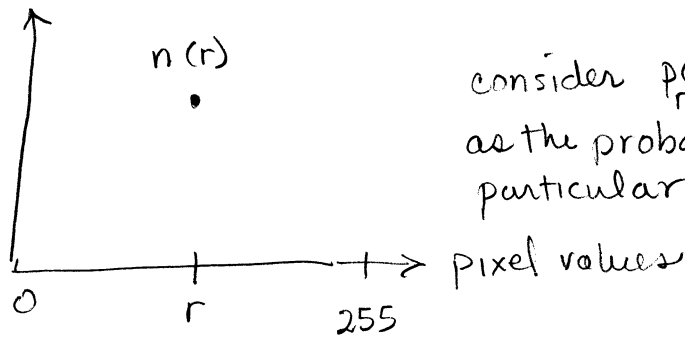 n(r)
consider
as the
particular
pixel values
0 r 255